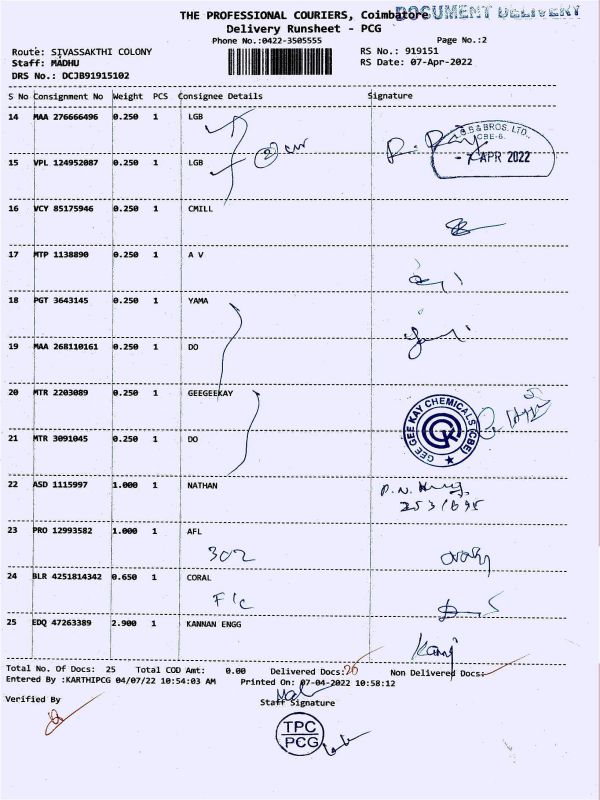 THE PROFESSIONAL COURIERS, Coimbatore
DOCUMENT DELIVERY
Delivery Runsheet - PCG
Phone No.:0422-3505555
Page No.:2
Route: SIVASSAKTHI COLONY
RS No.: 919151
Staff: MADHU
RS Date: 07-Apr-2022
DRS No.: DCJB91915102
S No Consignment No Weight PCS Consignee Details Signature
14 MAA 276666496 0.250 1 LGB
15 VPL 124952087 0.250 1 LGB
S.B & BROS. LTD.,
CBE-6.
- 7 APR 2022
16 VCY 85175946 0.250 1 CMILL
17 MTP 1138890 0.250 1 A V
18 PGT 3643145 0.250 1 YAMA
19 MAA 268110161 0.250 1 DO
20 MTR 2203089 0.250 1 GEEGEEKAY
GEE GEE KAY CHEMICALS (CBE)
21 MTR 3091045 0.250 1 DO
22 ASD 1115997 1.000 1 NATHAN
23 PRO 12993582 1.000 1 AFL
302
24 BLR 4251814342 0.650 1 CORAL
F/C
25 EDQ 47263389 2.900 1 KANNAN ENGG
Total No. Of Docs: 25 Total COD Amt: 0.00 Delivered Docs: Non Delivered Docs:
Entered By :KARTHIPCG 04/07/22 10:54:03 AM Printed On: 07-04-2022 10:58:12
Verified By
Staff Signature
TPC
PCG